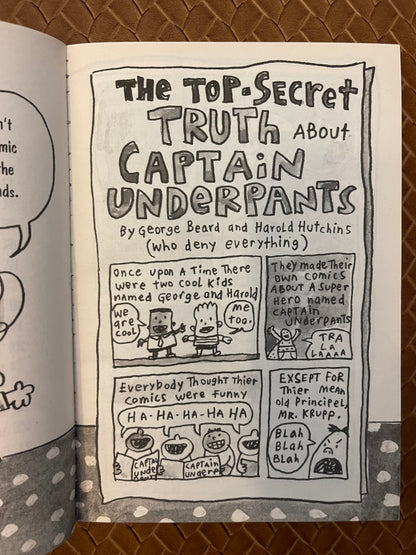 n't
mic
the
nds.
THE TOP-SECRET
TRUTH ABOUT
CAPTAIN
UNDERPANTS
By George Beard and Harold Hutchins
(who deny everything)
Once upon a Time There
were two cool kids
named George and Harold
We
are
cool
Me
too.
They made Their
own comics
ABOUT A super
Hero named
CAPTAIN
UNderpANTS
TRA
LA
LAAAA
Everybody Thought Thier
comics were funny
HA-HA-HA-HA HA
CAPTAI
UNDER
PANT
CAPTAIN
UNDERP
EXSEPT FOR
Thier mean
old Principel,
MR. Krupp.
Blah
Blah
Blah